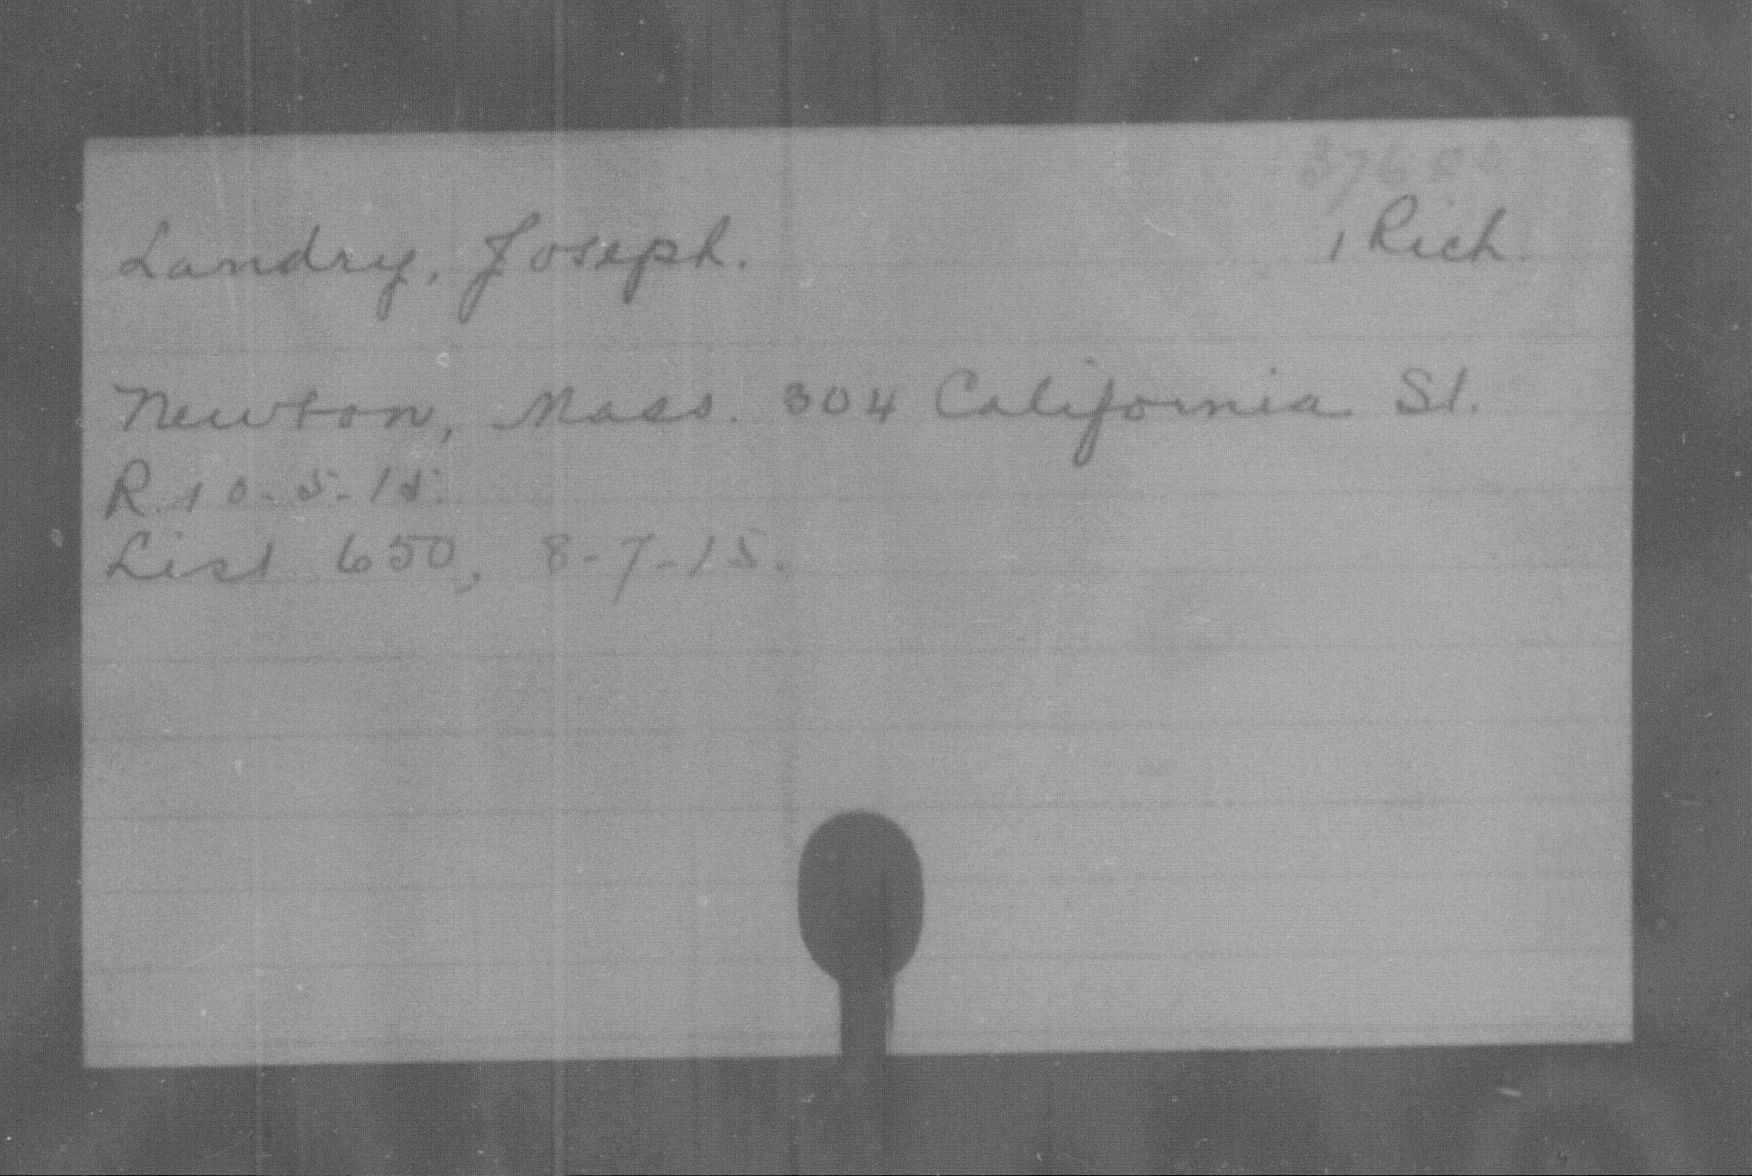 Landry, Joseph. 1 Rich.
Newton, Mass. 304 California St.
R. 10-5-15.
List 650, 8-7-15.